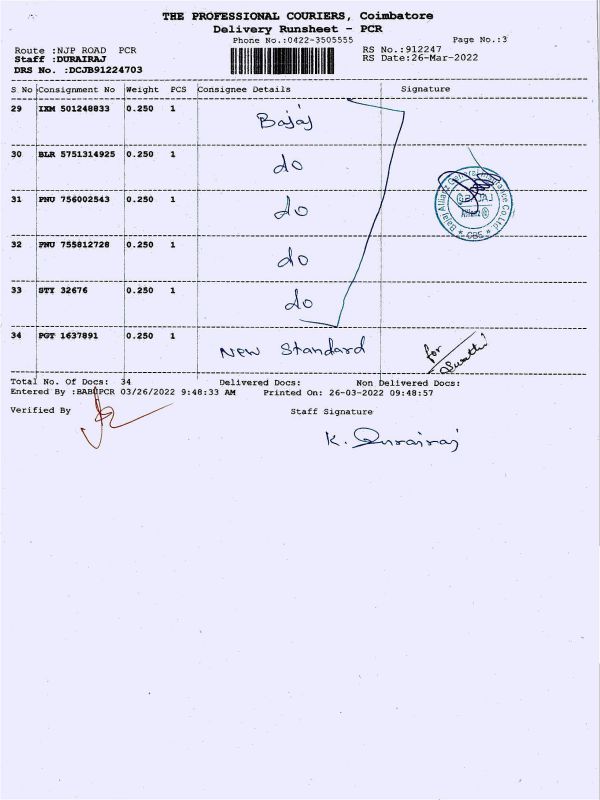 THE PROFESSIONAL COURIERS, Coimbatore
Delivery Runsheet - PCR
Phone No.:0422-3505555 Page No.:3
Route :NJP ROAD PCR RS No.:912247
Staff :DURAIRAJ RS Date:26-Mar-2022
DRS No. :DCJB91224703
S No Consignment No Weight PCS Consignee Details Signature
29 IXM 501248833 0.250 1 Bajaj
30 BLR 5751314925 0.250 1 do
31 PNU 756002543 0.250 1 do
Bajaj Allianz General Insurance Co. Ltd. * CBE *
BAJAJ
Allianz
32 PNU 755812728 0.250 1 do
33 STY 32676 0.250 1 do
34 PGT 1637891 0.250 1 New Standard for
Total No. Of Docs: 34 Delivered Docs: Non Delivered Docs:
Entered By :BABUPCR 03/26/2022 9:48:33 AM Printed On: 26-03-2022 09:48:57
Verified By Staff Signature
K. Durairaj